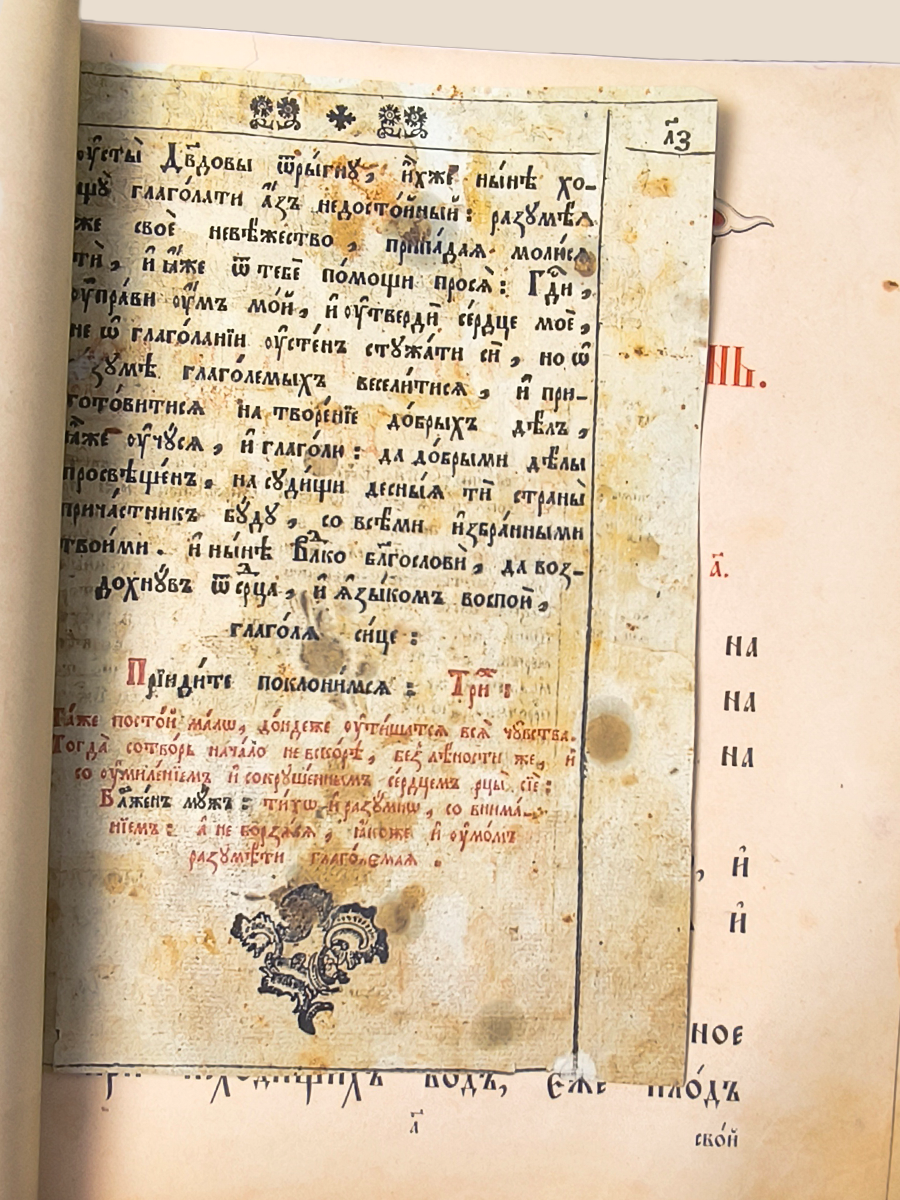 л҃з
ѹ҆сты̀ Дв҃довы ѿры́гнꙋ, и҆̀хже ны́нѣ хо-
щꙋ̀ глаго́лати а҆́зъ недосто́йный: разꙋмѣ́ѧ
же своѐ невѣ́жество, припа́даѧ моли́сѧ
тѝ, и҆ ꙗ҆́же ѿ тебѐ по́мощи просѧ̀: Гдⷭ҇и,
ѹ҆пра́ви ѹ҆́мъ мо́й, и҆ ѹ҆твердѝ се́рдце моѐ,
не ѡ҆ глаго́ланїи ѹ҆сте́нъ стꙋжа́ти сѝ, но ѡ҆
ра́зꙋмѣ глаго́лемыхъ весели́тисѧ, и҆ при-
гото́витисѧ на творе́нїе до́брыхъ дѣ́лъ,
ꙗ҆́же ѹ҆чꙋ́сѧ, и҆ глаго́лю: да до́брыми дѣ́лы
просвѣще́нъ, на сꙋди́щи десны́ѧ тѝ страны̀
прича́стникъ бꙋ́дꙋ, со всѣ́ми и҆збра́нными
твои́ми. и҆ ны́нѣ Влⷣко блг҃ословѝ, да воз-
дохнꙋ́въ ѿ срⷣца, и҆ ѧ҆зы́комъ воспою̀,
глаго́лѧ си́це:
Прїиди́те поклони́мсѧ: Три́ⷤ:
Та́же посто́й ма́лѡ, до́ндеже ѹ҆ти́шатсѧ всѧ̀ чꙋ́вства.
Тогда̀ сотво́рь нача́ло не вско́рѣ, без̾ лѣ́ности же, и҆
со ѹ҆миле́нїемъ и҆ сокрꙋше́ннымъ се́рдцемъ рцы̀ сїѐ:
Бл҃же́нъ мꙋ́жъ: ти́хѡ и҆ разꙋ́мнѡ, со внима́-
нїемъ: а҆ не борзѧ́сѧ, ꙗ҆́коже и҆ ѹ҆мо́мъ
разꙋмѣ́ти глаго́лемаѧ.
нь.
а҃.
на
на
на
, и҆
и҆
ное
водъ, є҆́же пло́дъ
а҃
сво́й